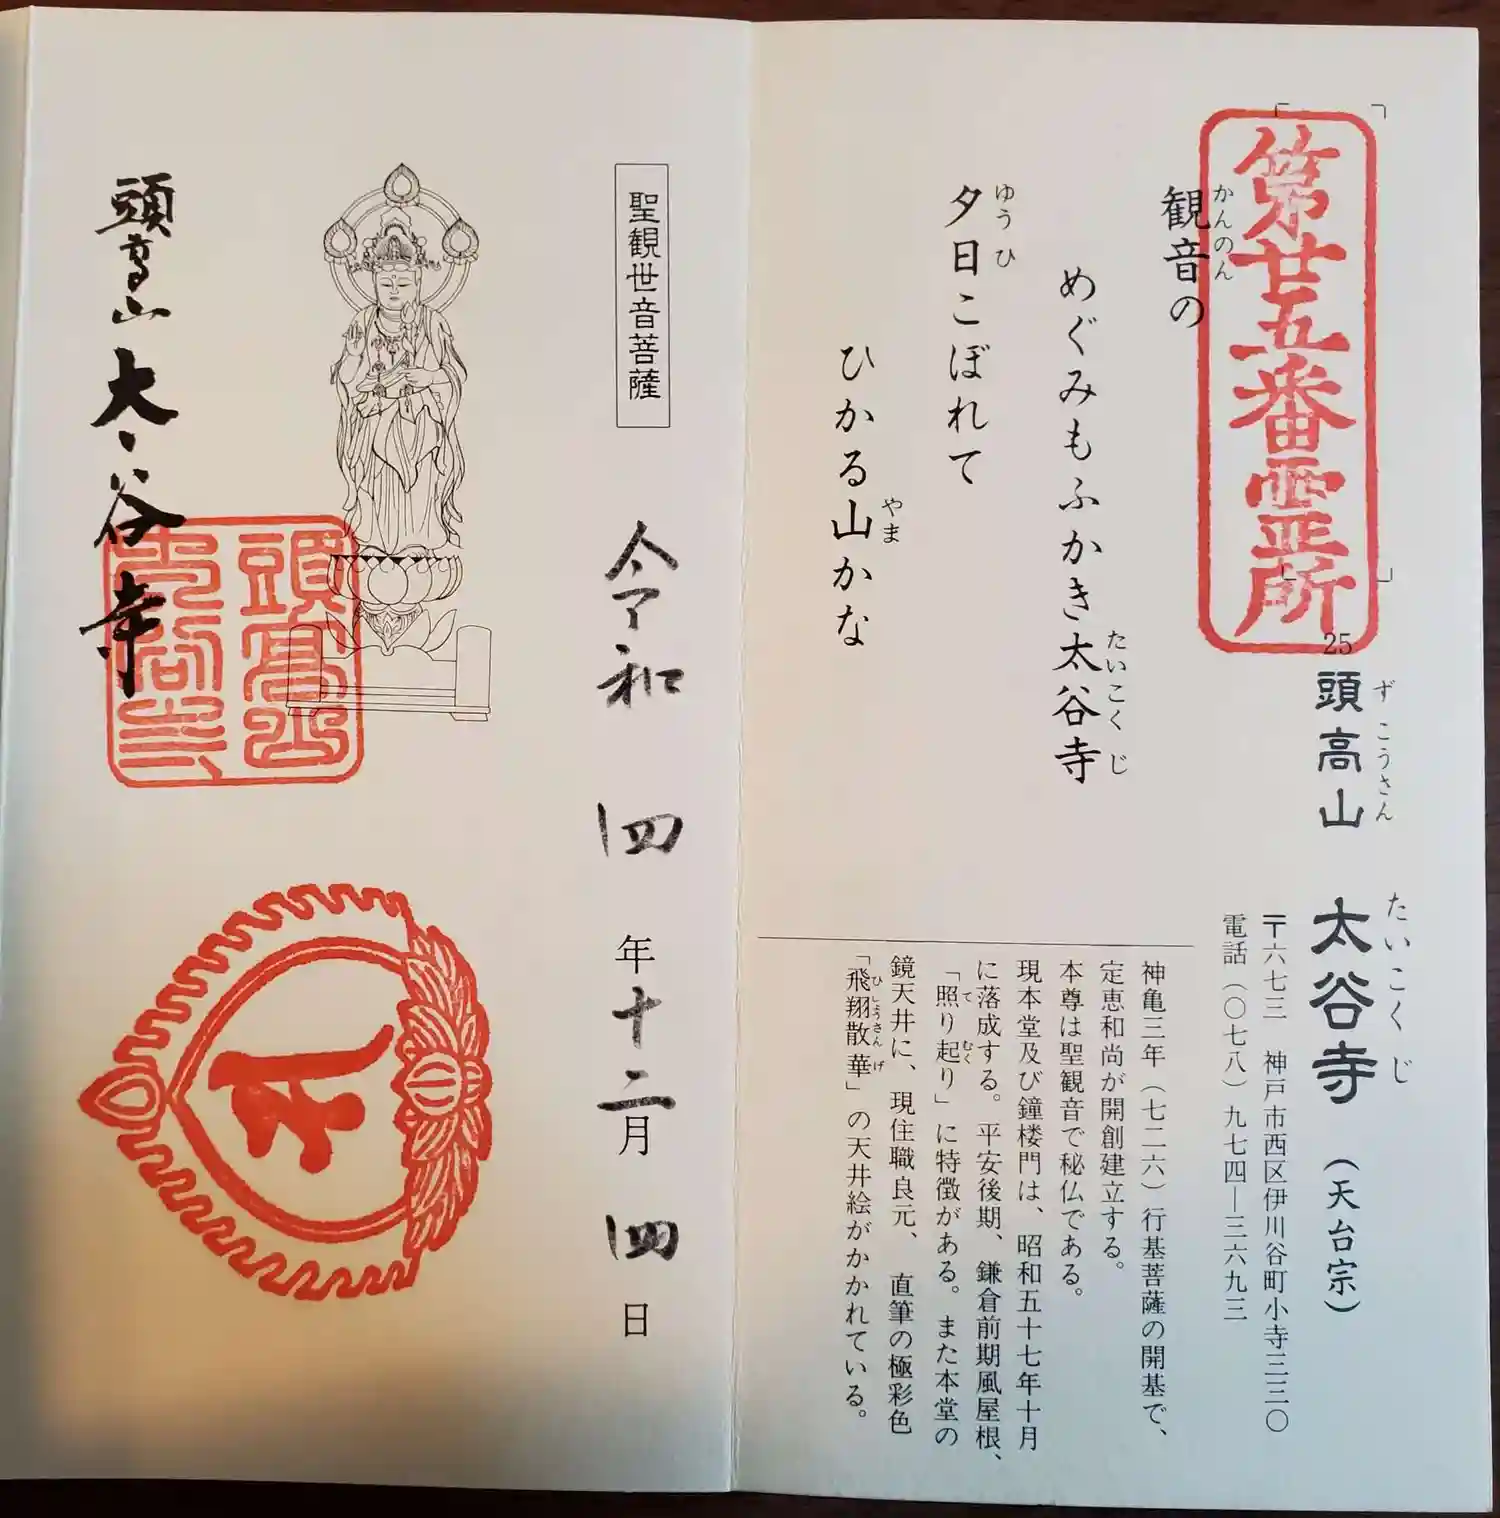 第廿五番霊所
25
頭高山 太谷寺 (天台宗)
ずこうさん たいこくじ
〒六七三 神戸市西区伊川谷町小寺三三〇
電話(〇七八)九七四―三六九三
観音の
かんのん
めぐみもふかき太谷寺
たいこくじ
夕日こぼれて
ゆうひ
ひかる山かな
やま
神亀三年(七二六)行基菩薩の開基で、
定恵和尚が開創建立する。
本尊は聖観音で秘仏である。
現本堂及び鐘楼門は、昭和五十七年十月
に落成する。平安後期、鎌倉前期風屋根、
「照り起り」に特徴がある。また本堂の
て むく
鏡天井に、現住職良元、直筆の極彩色
「飛翔散華」の天井絵がかかれている。
ひしょうさんげ
聖観世音菩薩
令和四年十二月四日
頭高山 太谷寺
頭高山